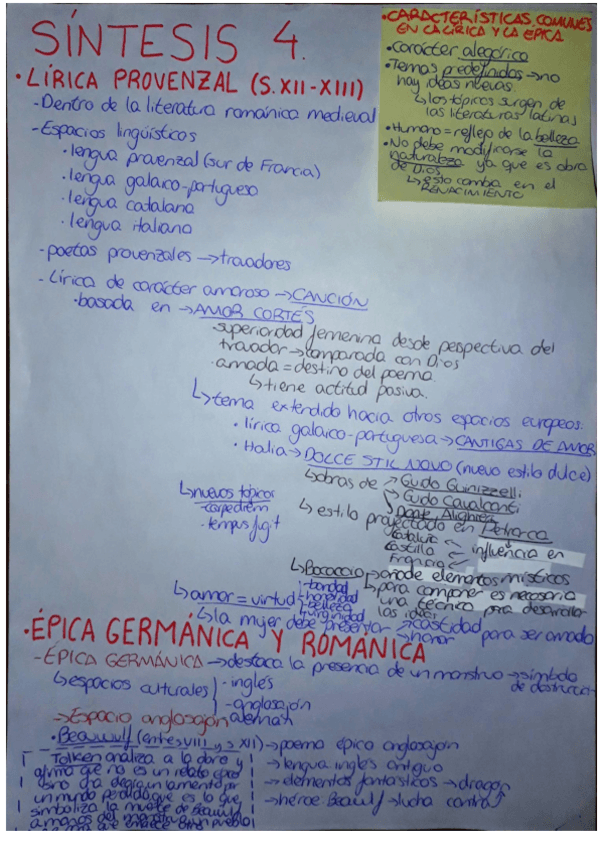 SÍNTESIS 4.
• LÍRICA PROVENZAL (S.XII-XIII)
- Dentro de la literatura románica medieval
- Espacios lingüísticos
• lengua provenzal (sur de Francia)
• lengua galaico-portugueso
• lengua catalana
• lengua italiana
- poetas provenzales → trovadores
- Lírica de carácter amoroso → CANCIÓN
• basada en → AMOR CORTÉS
• superioridad femenina desde perspectiva del
trovador → comparada con Dios
• amada = destino del poema
↳ tiene actitud pasiva.
↳ tema extendido hacia otros espacios europeos:
• lírica galaico-portuguesa → CANTIGAS DE AMOR
• Italia → DOLCE STIL NOVO (nuevo estilo dulce)
↳ obras de → Guido Guinizzelli
Guido Cavalcanti
Dante Alighieri
↳ nuevos tópicos
- carpediem
- tempus fugit
↳ estilo proyectado en Petrarca
Cataluña
Castilla
Francia
influencia en
↳ Bocaccio → añade elementos místicos
↳ para componer es necesaria
una técnica para desarrollar
las ideas
↳ amor = virtud
- bondad
- honestidad
- belleza
- virginidad
↳ la mujer debe preservar → castidad
→ honor
para ser amada
• ÉPICA GERMÁNICA Y ROMÁNICA
- ÉPICA GERMÁNICA → destaca la presencia de un monstruo → símbolo
de destrucción
↳ espacios culturales
- inglés
- anglosajón
- alemán
→ Espacio anglosajón
• Beawulf (entre s VIII y s XII) → poema épico anglosajón
→ lengua inglés antiguo
→ elementos fantásticos → dragón
→ héroe Beawulf → lucha contra
Tolkien analiza a la obra y
afirma que no es un relato épico
sino una elegía, un lamento por
un mundo perdido, que es lo que
simboliza la muerte de Beawulf
a manos del monstruo
un pueblo
• CARACTERÍSTICAS COMUNES
EN LA LÍRICA Y LA ÉPICA
• carácter alegórico
• Temas predefinidos → no
hay ideas nuevas
↳ los tópicos surgen de
las literaturas latinas
• Humano = reflejo de la belleza
• No debe modificarse la
naturaleza ya que es obra
de Dios
↳ esto cambia en el
RENACIMIENTO